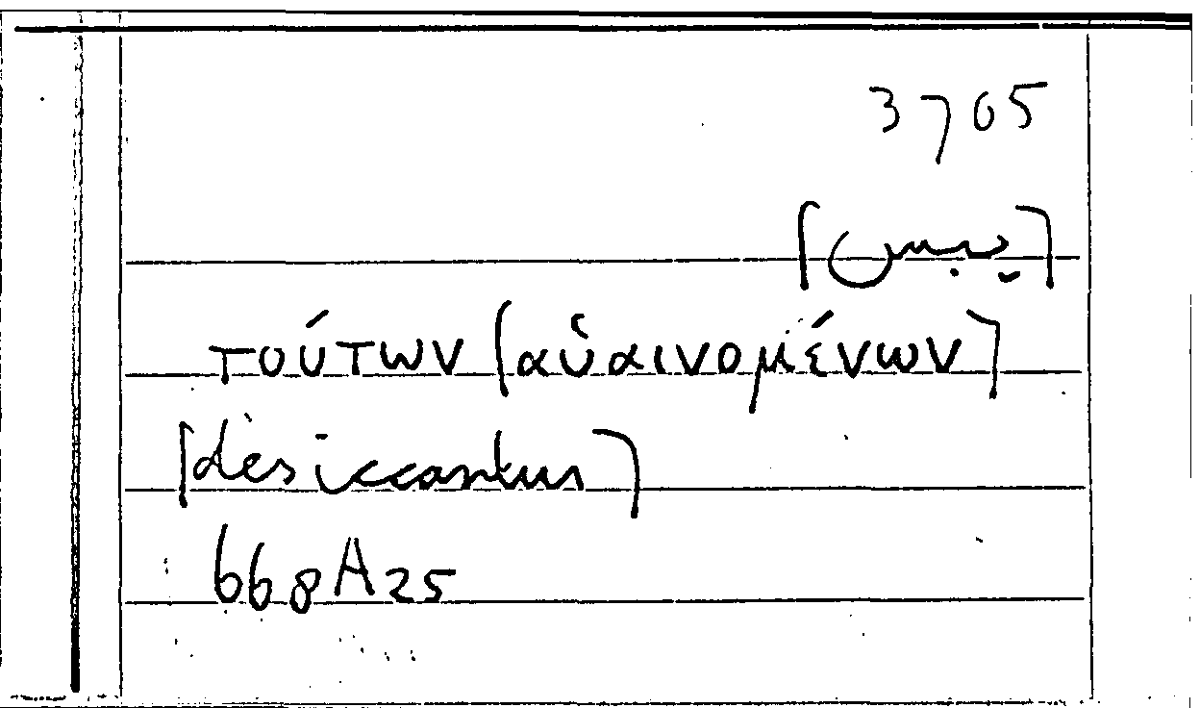 3705
[يبس]
τούτων [αὐαινομένων]
[desiccantur]
668A25